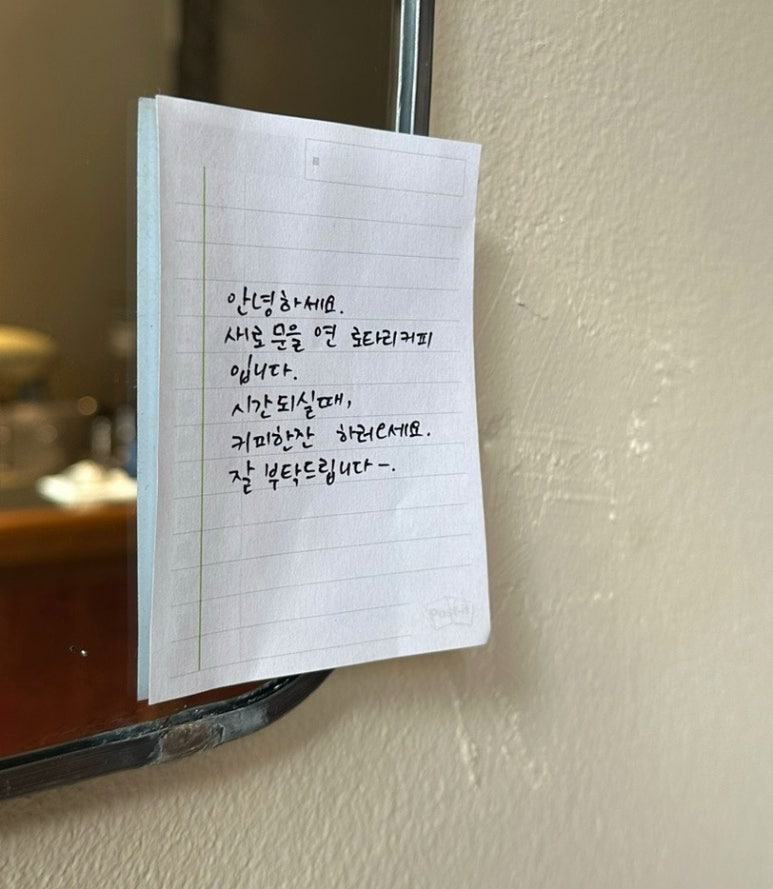 안녕하세요.
새로 문을 연 로타리커피
입니다.
시간되실때,
커피한잔 하러오세요.
잘 부탁드립니다-.
Post-it